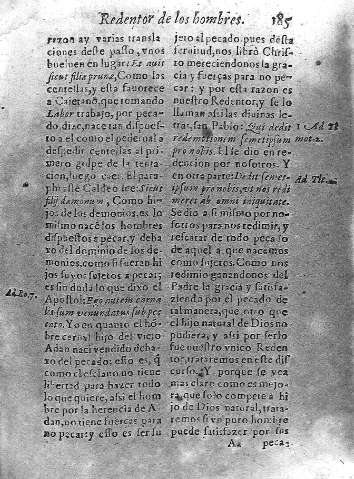 Redentor de los hombres. 185
razon ay varias transla
ciones deste passo, vnos
buelven en lugar: Et auis
sicut filia prunæ, Como las
centellas, y esta favorece
a Caietano, que tomando
Labor trabajo, por peca-
do dize, nace tan dispues-
to a el como el pedernal a
despedir centellas al pri-
mero golpe de la tenta-
cion, luego cae. El para-
phraste Caldeo lee: Sicut
filij dæmonum, Como hi-
jos de los demonios, es lo
mismo nacè los hombres
dispuestos a pecar, y deba
xo del dominio de los de-
monios, como si fueran hi
jos suyos sujetos a pecar;
es sin duda lo que dixo el
Apostol: Ego autem carna
lis sum venundatus sub pec
cato. Y o en quanto el hõ-
bre carnal hijo del viejo
Adan naci vendido deba-
xo del pecado: esso es, q̃
como el esclavo no tiene
libertad para hazer todo
lo que quiere, assi el hom
bre por la herencia de A-
dan, no tiene fuerças para
no pecar: y esso es ser su
jeto al pecado, pues desta
servitud, nos librò Chris-
to mereciendonos la gra-
cia y fuerças para no pe-
car: y por esta razon es
nuestro Redentor, y se lo
llaman assi las divinas le-
tras, san Pablo: Qui dedit
redemptionem semetipsum
pro nobis. El se dio en re-
dencion por nosotros. Y
en otra parte: Dedit semet-
ipsum pro nobis, vt nos redi
meret ab omni iniquitate.
Se dio a si mismo por no-
sotros para nos redimir, y
rescatar de todo pecado
de aquel a que nacemos
como sujetos. Como nos
redimio ganandonos del
Padre la gracia y satisfa-
ziendo por el pecado de
tal manera, que otro que
el hijo natural de Dios no
pudiera, y assi por ser lo
fue nuestro vnico Reden-
tor, trataremos en este dis
curso. Y porque se vea
mas clare como es mejo-
ra, que solo compete a hi
jo de Dios natural, trata-
remos si vn puro hombre
puede satisfazer por sus
Aa peca-
1. Ad Ti
mot. 2.
Ad Tit.
Ad Ro. 7.